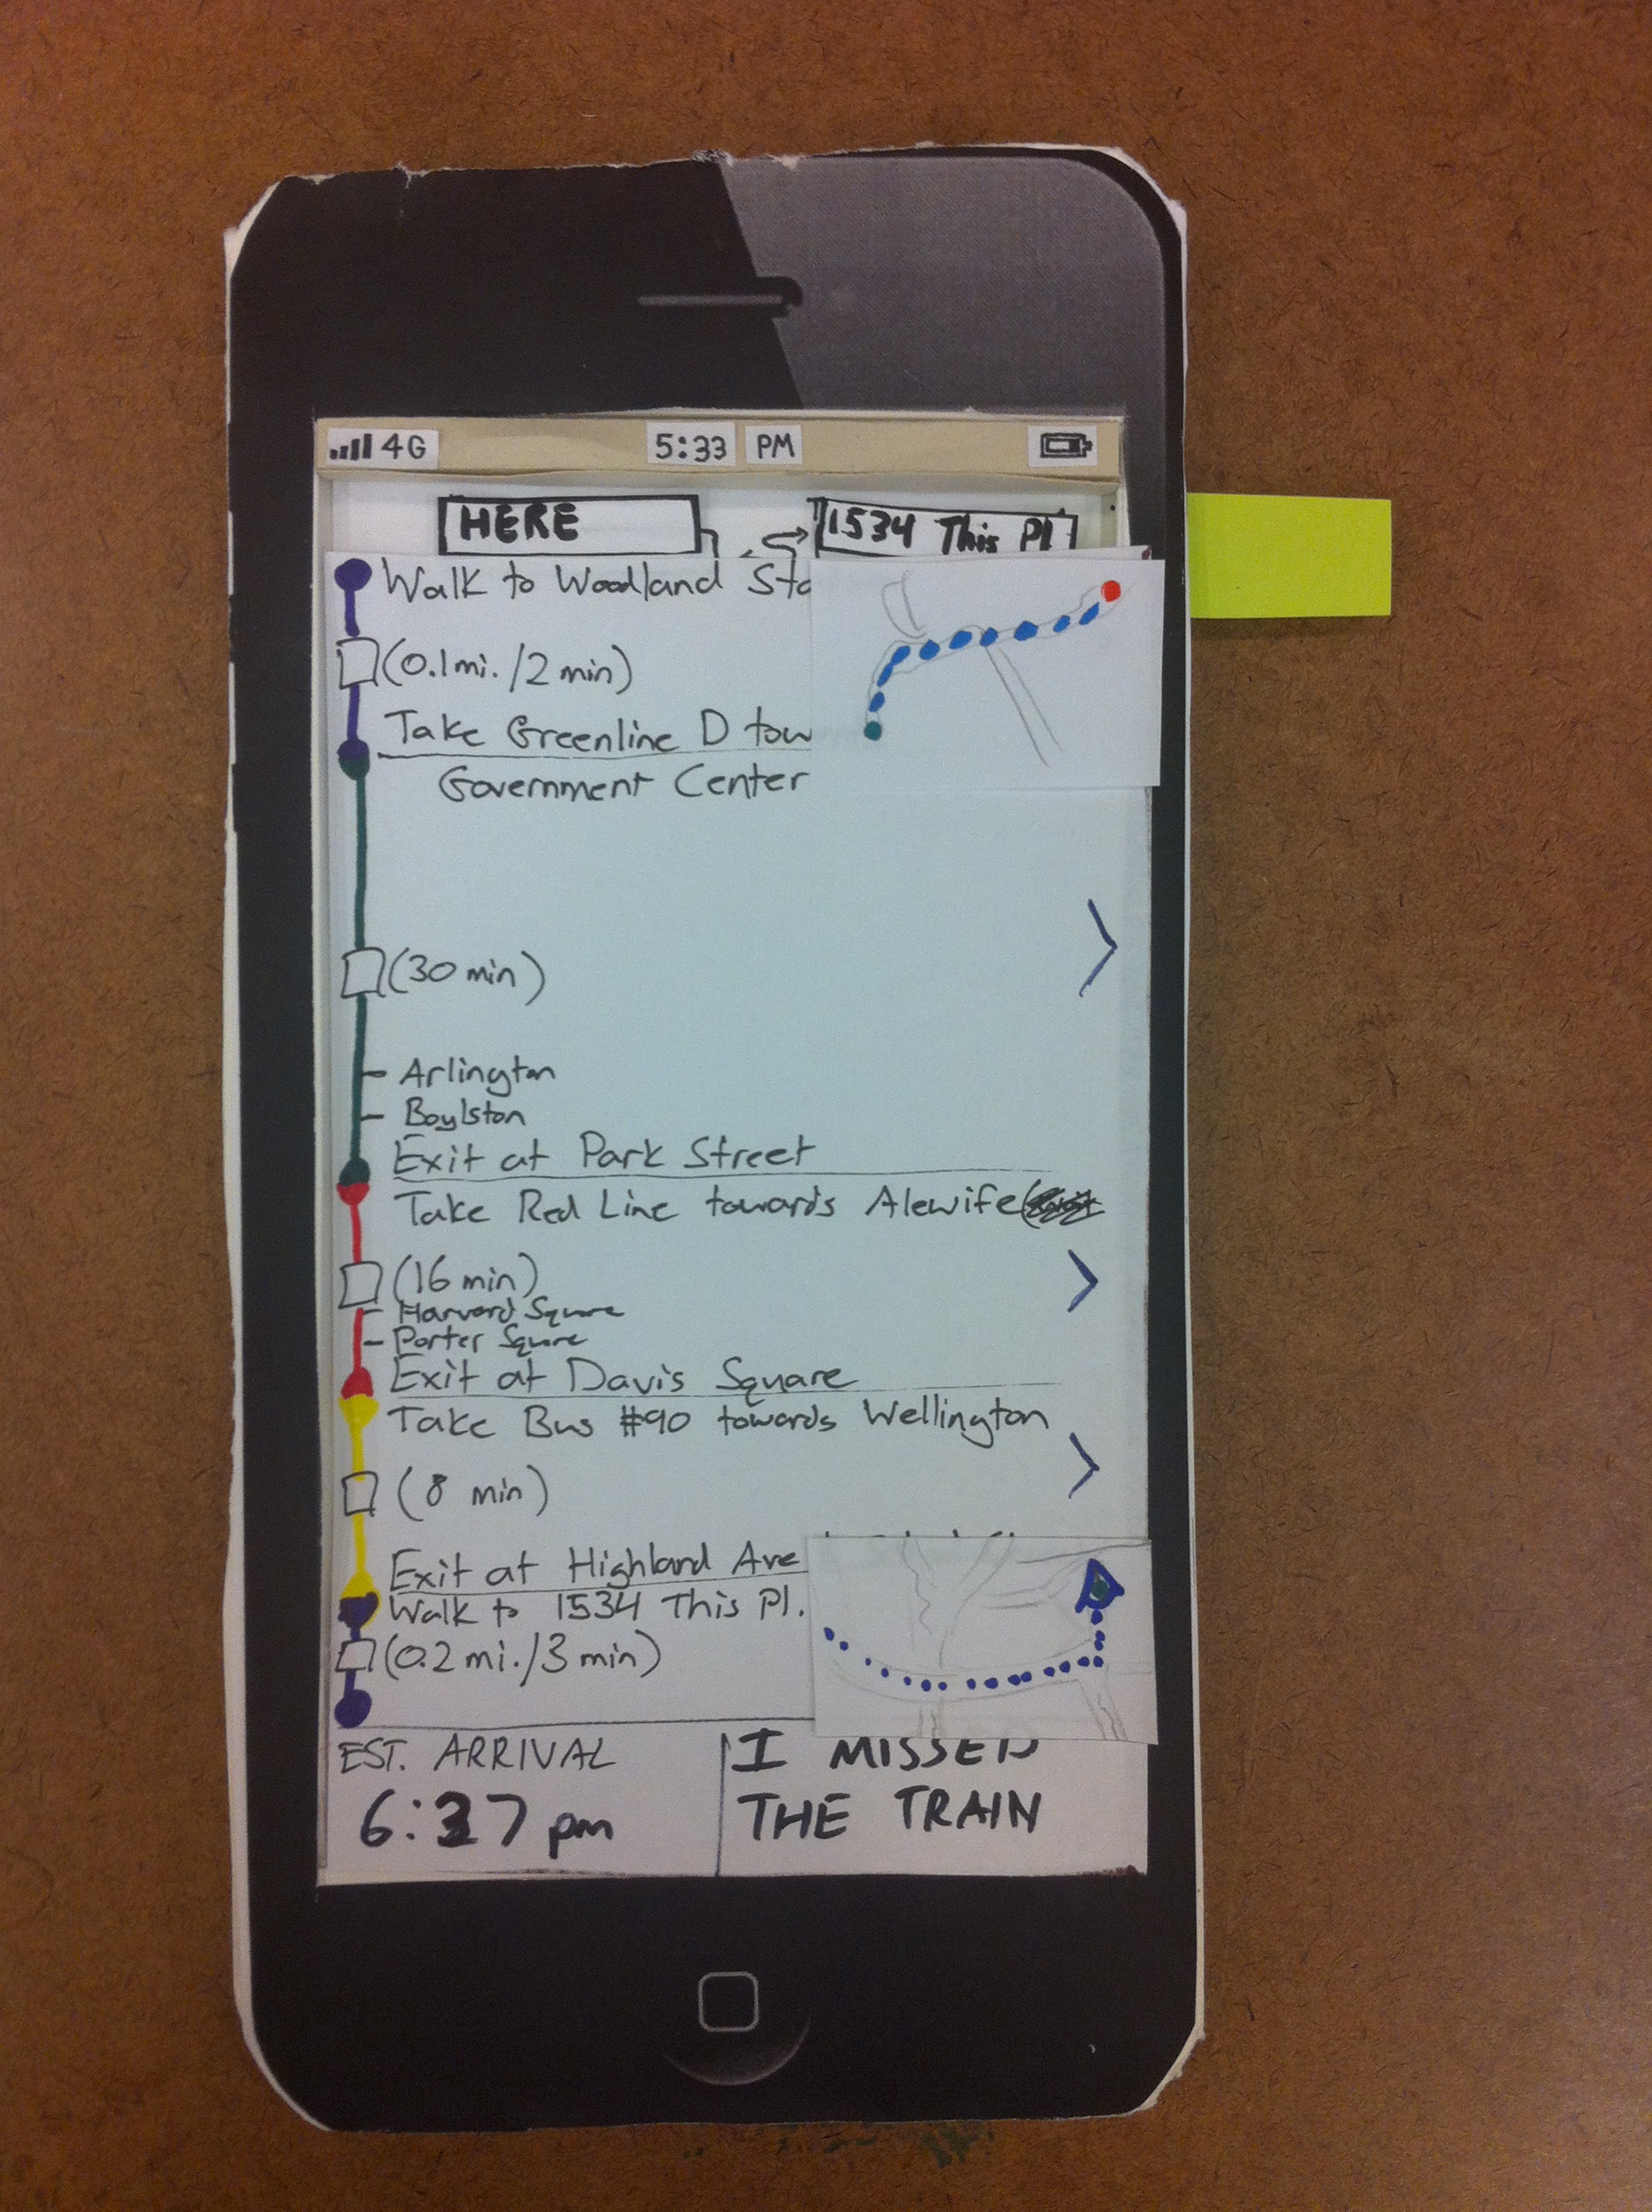 4G 5:33 PM
HERE 1534 This Pl
Walk to Woodland Sta
(0.1mi./2 min)
Take Greenline D tow
Government Center
(30 min)
Arlington
Boylston
Exit at Park Street
Take Red Line towards Alewife
(16 min)
Harvard Square
Porter Square
Exit at Davis Square
Take Bus #90 towards Wellington
(8 min)
Exit at Highland Ave
Walk to 1534 This Pl.
(0.2 mi./3 min)
EST. ARRIVAL
6:37 pm
I MISSED
THE TRAIN